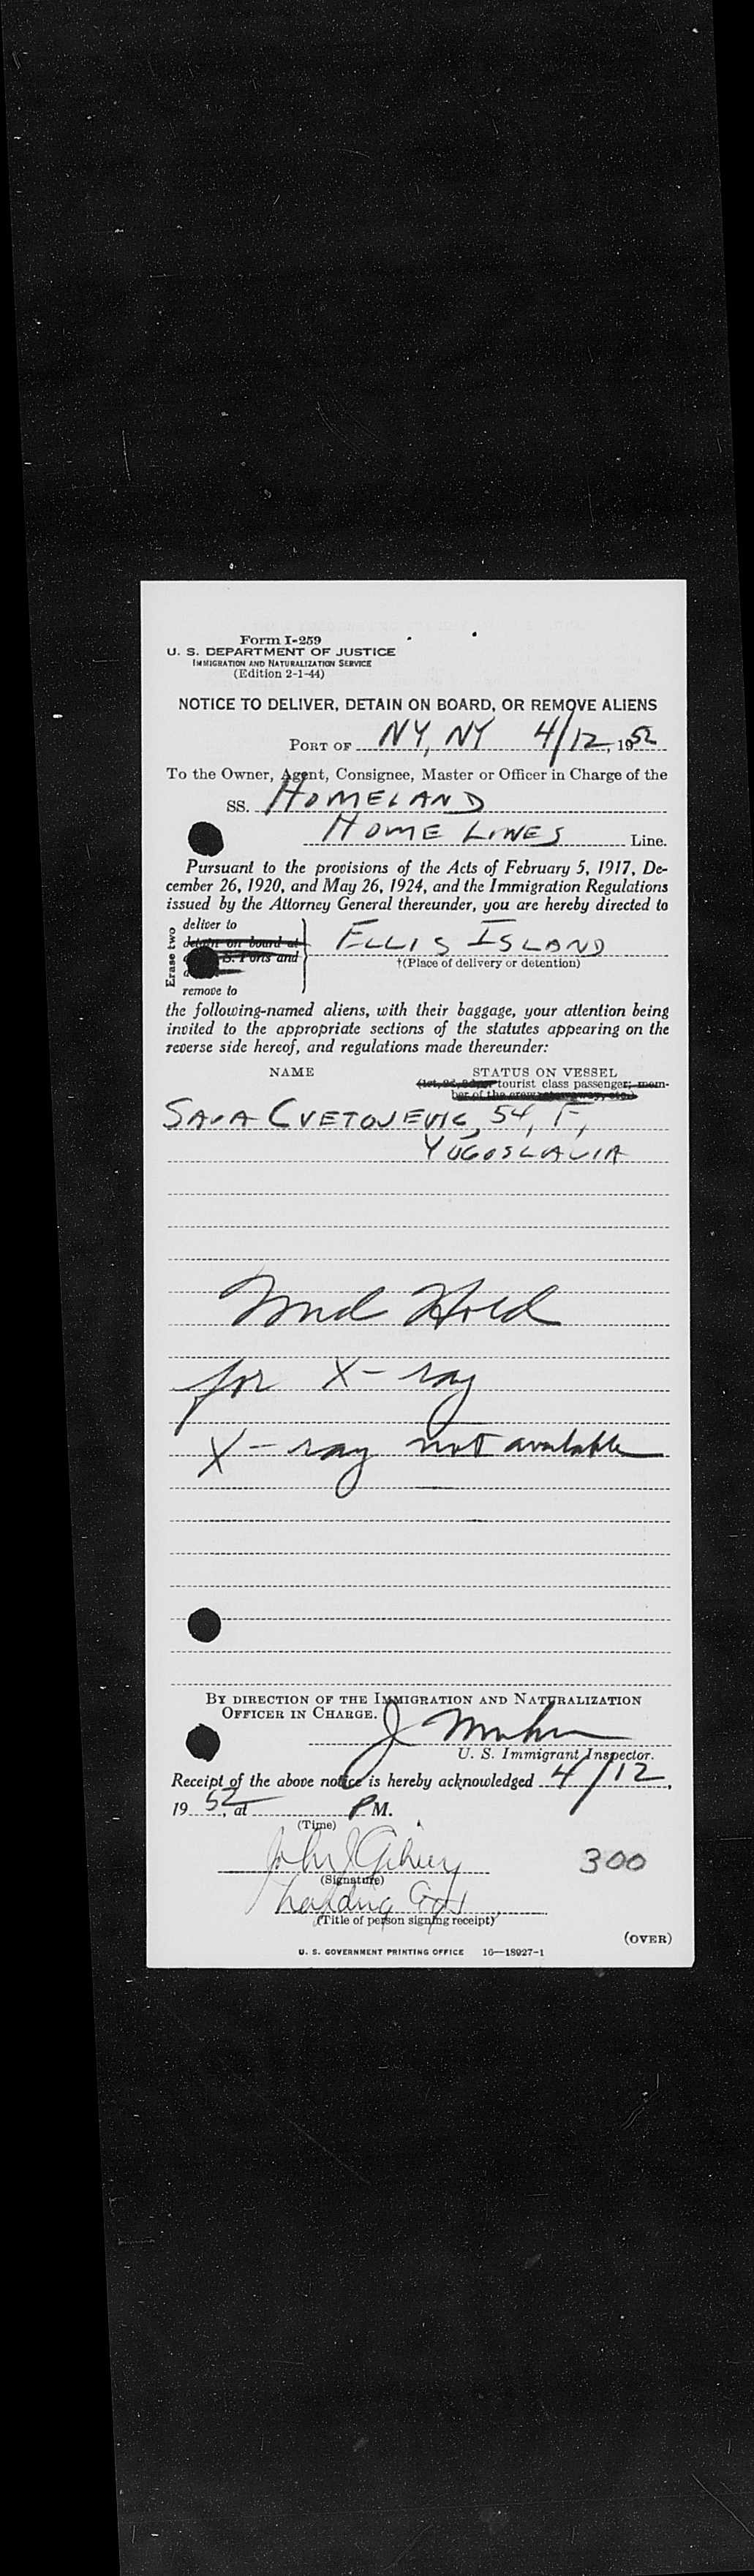 Form I-259
U. S. DEPARTMENT OF JUSTICE
IMMIGRATION AND NATURALIZATION SERVICE
(Edition 2-1-44)
NOTICE TO DELIVER, DETAIN ON BOARD, OR REMOVE ALIENS
PORT OF NY, NY 4/12, 1952
To the Owner, Agent, Consignee, Master or Officer in Charge of the
SS. HOMELAND
HOME LINES Line.
Pursuant to the provisions of the Acts of February 5, 1917, De-
cember 26, 1920, and May 26, 1924, and the Immigration Regulations
issued by the Attorney General thereunder, you are hereby directed to
Erase two
deliver to
detain on board at
S. Ports and
remove to
ELLIS ISLAND
†(Place of delivery or detention)
the following-named aliens, with their baggage, your attention being
invited to the appropriate sections of the statutes appearing on the
reverse side hereof, and regulations made thereunder:
NAME STATUS ON VESSEL
(1st, 2d, 3d, or tourist class passenger; mem-
ber of the crew, stowaway, etc.)
SAVA CVETOJEVIC, 54, F,
YUGOSLAVIA
Med Hold
for X-ray
X-ray not available
BY DIRECTION OF THE IMMIGRATION AND NATURALIZATION
OFFICER IN CHARGE.
J
U. S. Immigrant Inspector.
Receipt of the above notice is hereby acknowledged 4/12,
1952, at P M.
(Time)
John J
300
(Signature)
(Title of person signing receipt)
(OVER)
U. S. GOVERNMENT PRINTING OFFICE 16—18927-1